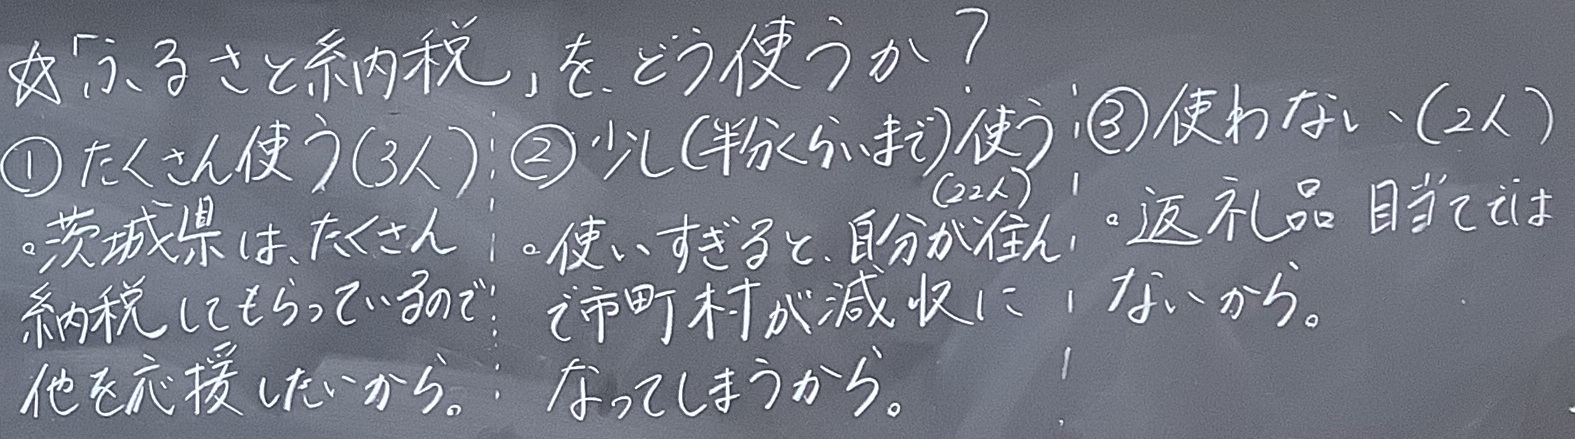 ☆「ふるさと納税」を、どう使うか？
①たくさん使う(3人)
。茨城県は、たくさん
納税してもらっているので
他を応援したいから。
②少し(半分くらいまで)使う
(22人)
。使いすぎると、自分が住ん
で市町村が減収に
なってしまうから。
③使わない、(2人)
。返礼品目当てでは
ないから。